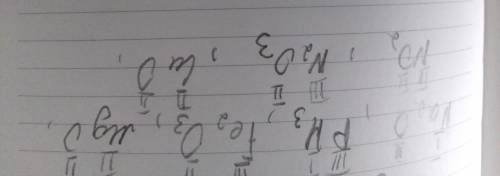 I II III I III II II II
Na₂O, PH₃, Fe₂O₃, MgO,
III II II II
NO₂, N₂O₃, CaO,